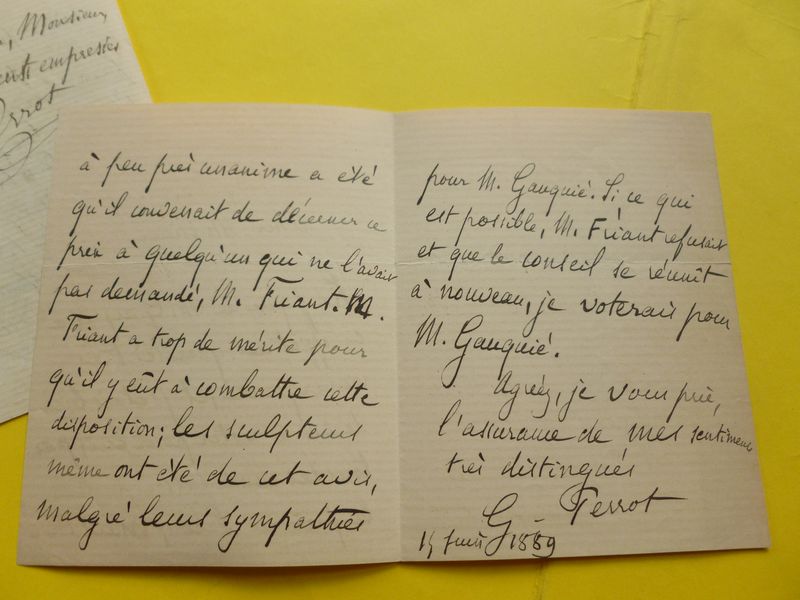 , Monsieur,
empressés
Perrot
à peu près unanime a été
qu'il convenait de décerner ce
prix à quelqu'un qui ne l'avait
pas demandé, M. Friant. M.
Friant a trop de mérite pour
qu'il y eût à combattre cette
disposition; les sculpteurs
même ont été de cet avis,
malgré leurs sympathies
pour M. Gauquié. Si ce qui
est possible, M. Friant refusait
et que le conseil se réunît
à nouveau, je voterais pour
M. Gauquié.
Agréez, je vous prie,
l'assurance de mes sentiments
très distingués
G. Perrot
Juin 1889